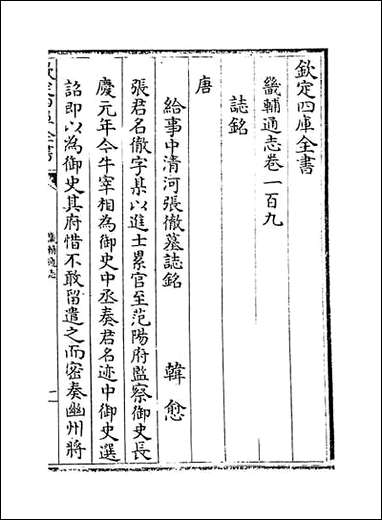 欽定四庫全書
畿輔通志卷一百九
誌銘
唐
給事中清河張徹墓誌銘 韓愈
張君名徹字某以進士累官至范陽府監察御史長
慶元年今牛宰相為御史中丞奏君名迹中御史選
詔即以為御史其府惜不敢留遣之而密奏幽州將
畿輔通志